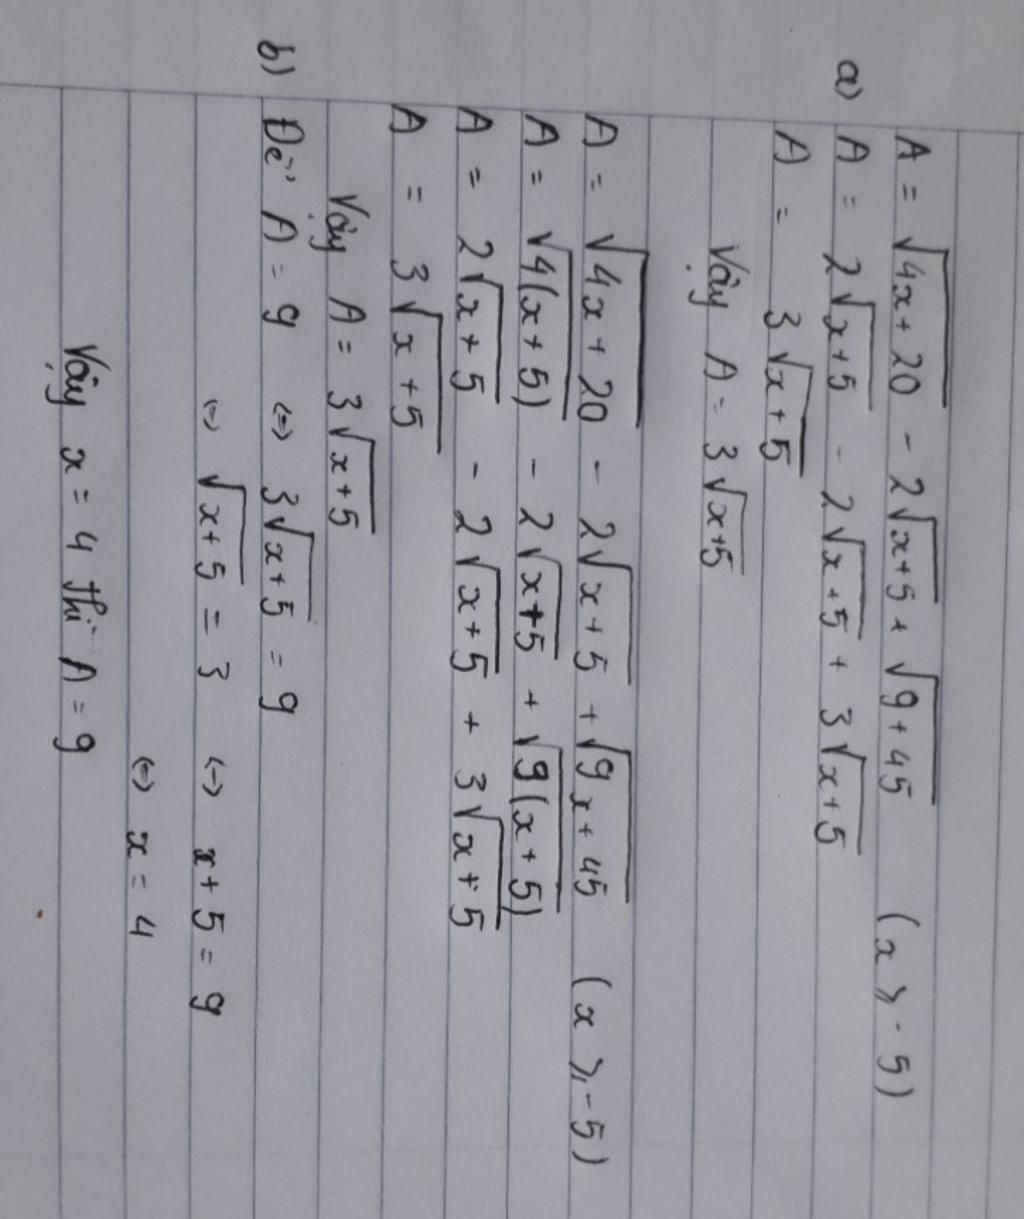 A = √(4x + 20) - 2√(x+5) + √(9+45) (x ⩾ -5)
a) A = 2√(x+5) - 2√(x+5) + 3√(x+5)
A = 3√(x+5)
Vậy A = 3√(x+5)
A = √(4x + 20) - 2√(x+5) + √(9x+45) (x ⩾ -5)
A = √(4(x+5)) - 2√(x+5) + √(9(x+5))
A = 2√(x+5) - 2√(x+5) + 3√(x+5)
A = 3√(x+5)
Vậy A = 3√(x+5)
b) Để A = 9 ⇔ 3√(x+5) = 9
⇔ √(x+5) = 3 ⇔ x+5 = 9
⇔ x = 4
Vậy x = 4 thì A = 9